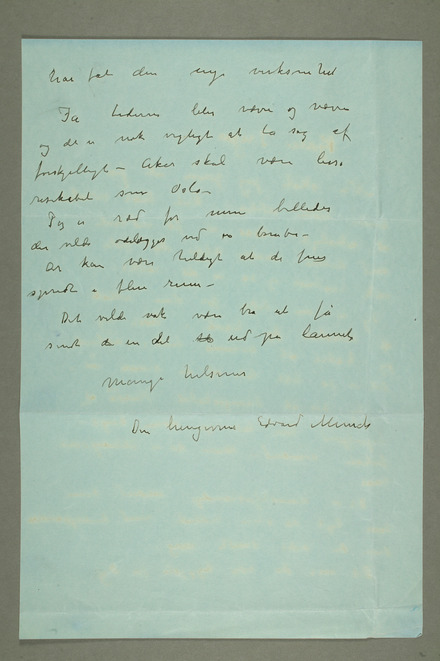 har fåt den nye virksomhed
Ja tiderne blir værre og værre
og det er nok vigtigt at ta sig af
forskjelligt – Aker skal være likså
som Oslo –
Jeg er ræd for mine billeder
der vilde ødelægges ved en bombe –
Det kan være heldigt at de
spredt i flere rum –
Det vilde nok være bra at få
sendt en del ud på landet
Mange hilsener
Din hengivne Edvard Munch